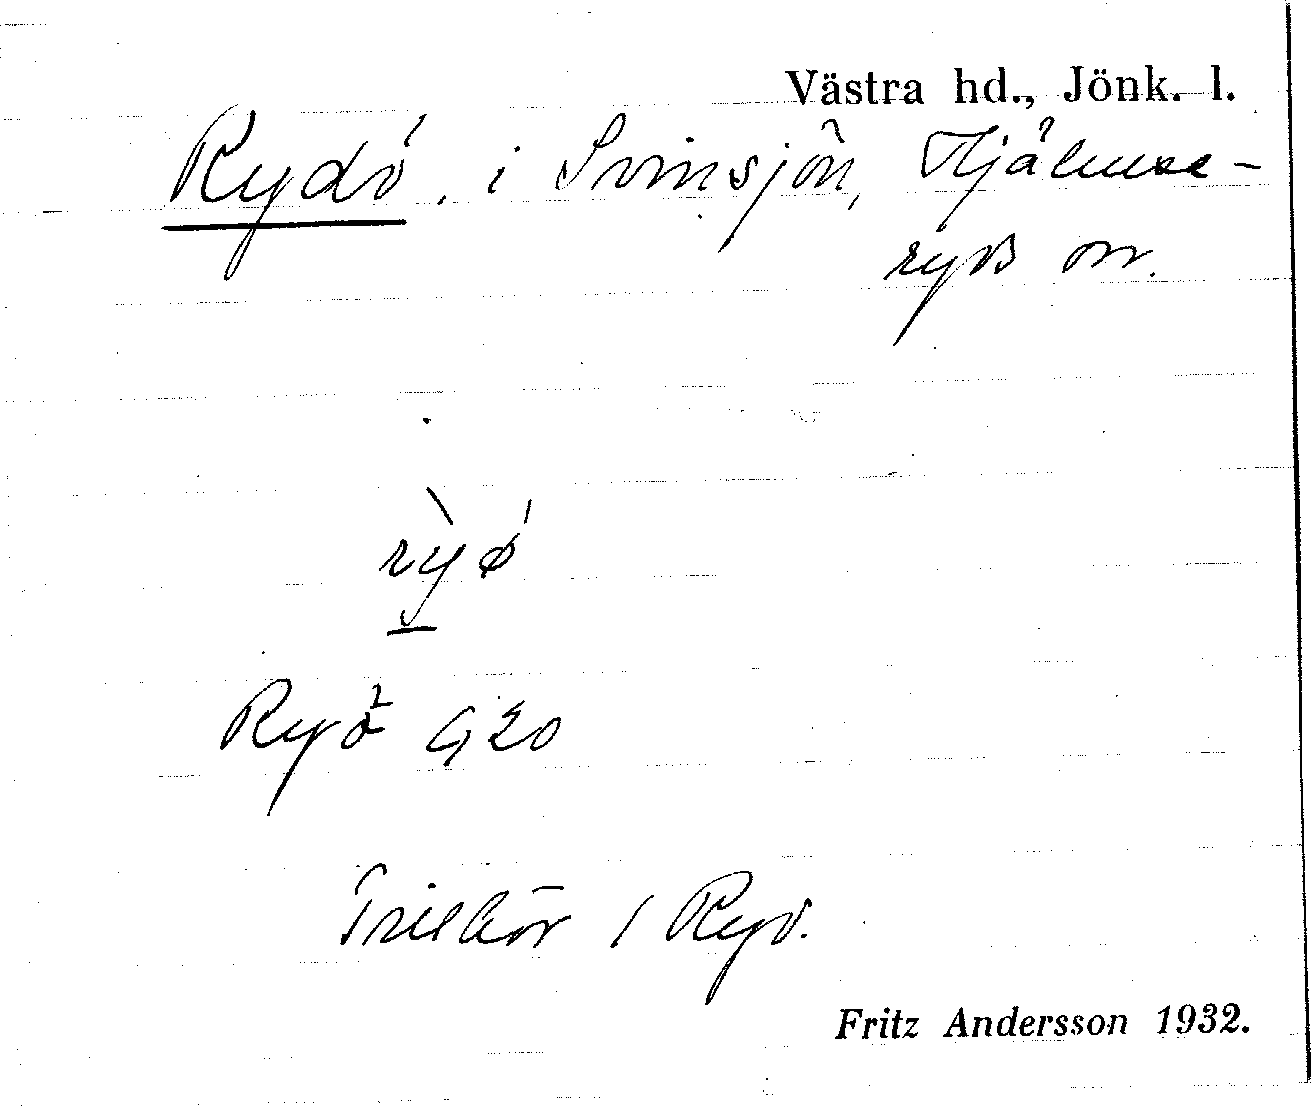 Västra hd., Jönk. l.
Rydö. i Svinsjön, Hjälmse-
ryds sn.
rỳø
Ryö G20
Tillhör / Ryö.
Fritz Andersson 1932.